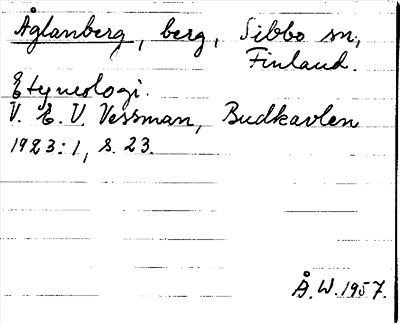 Åglanberg, berg, Sibbo sn,
Finland.
Etymologi.
V. E. V. Vessman, Budkavlen
1923:1, s. 23.
Å. W. 1957.